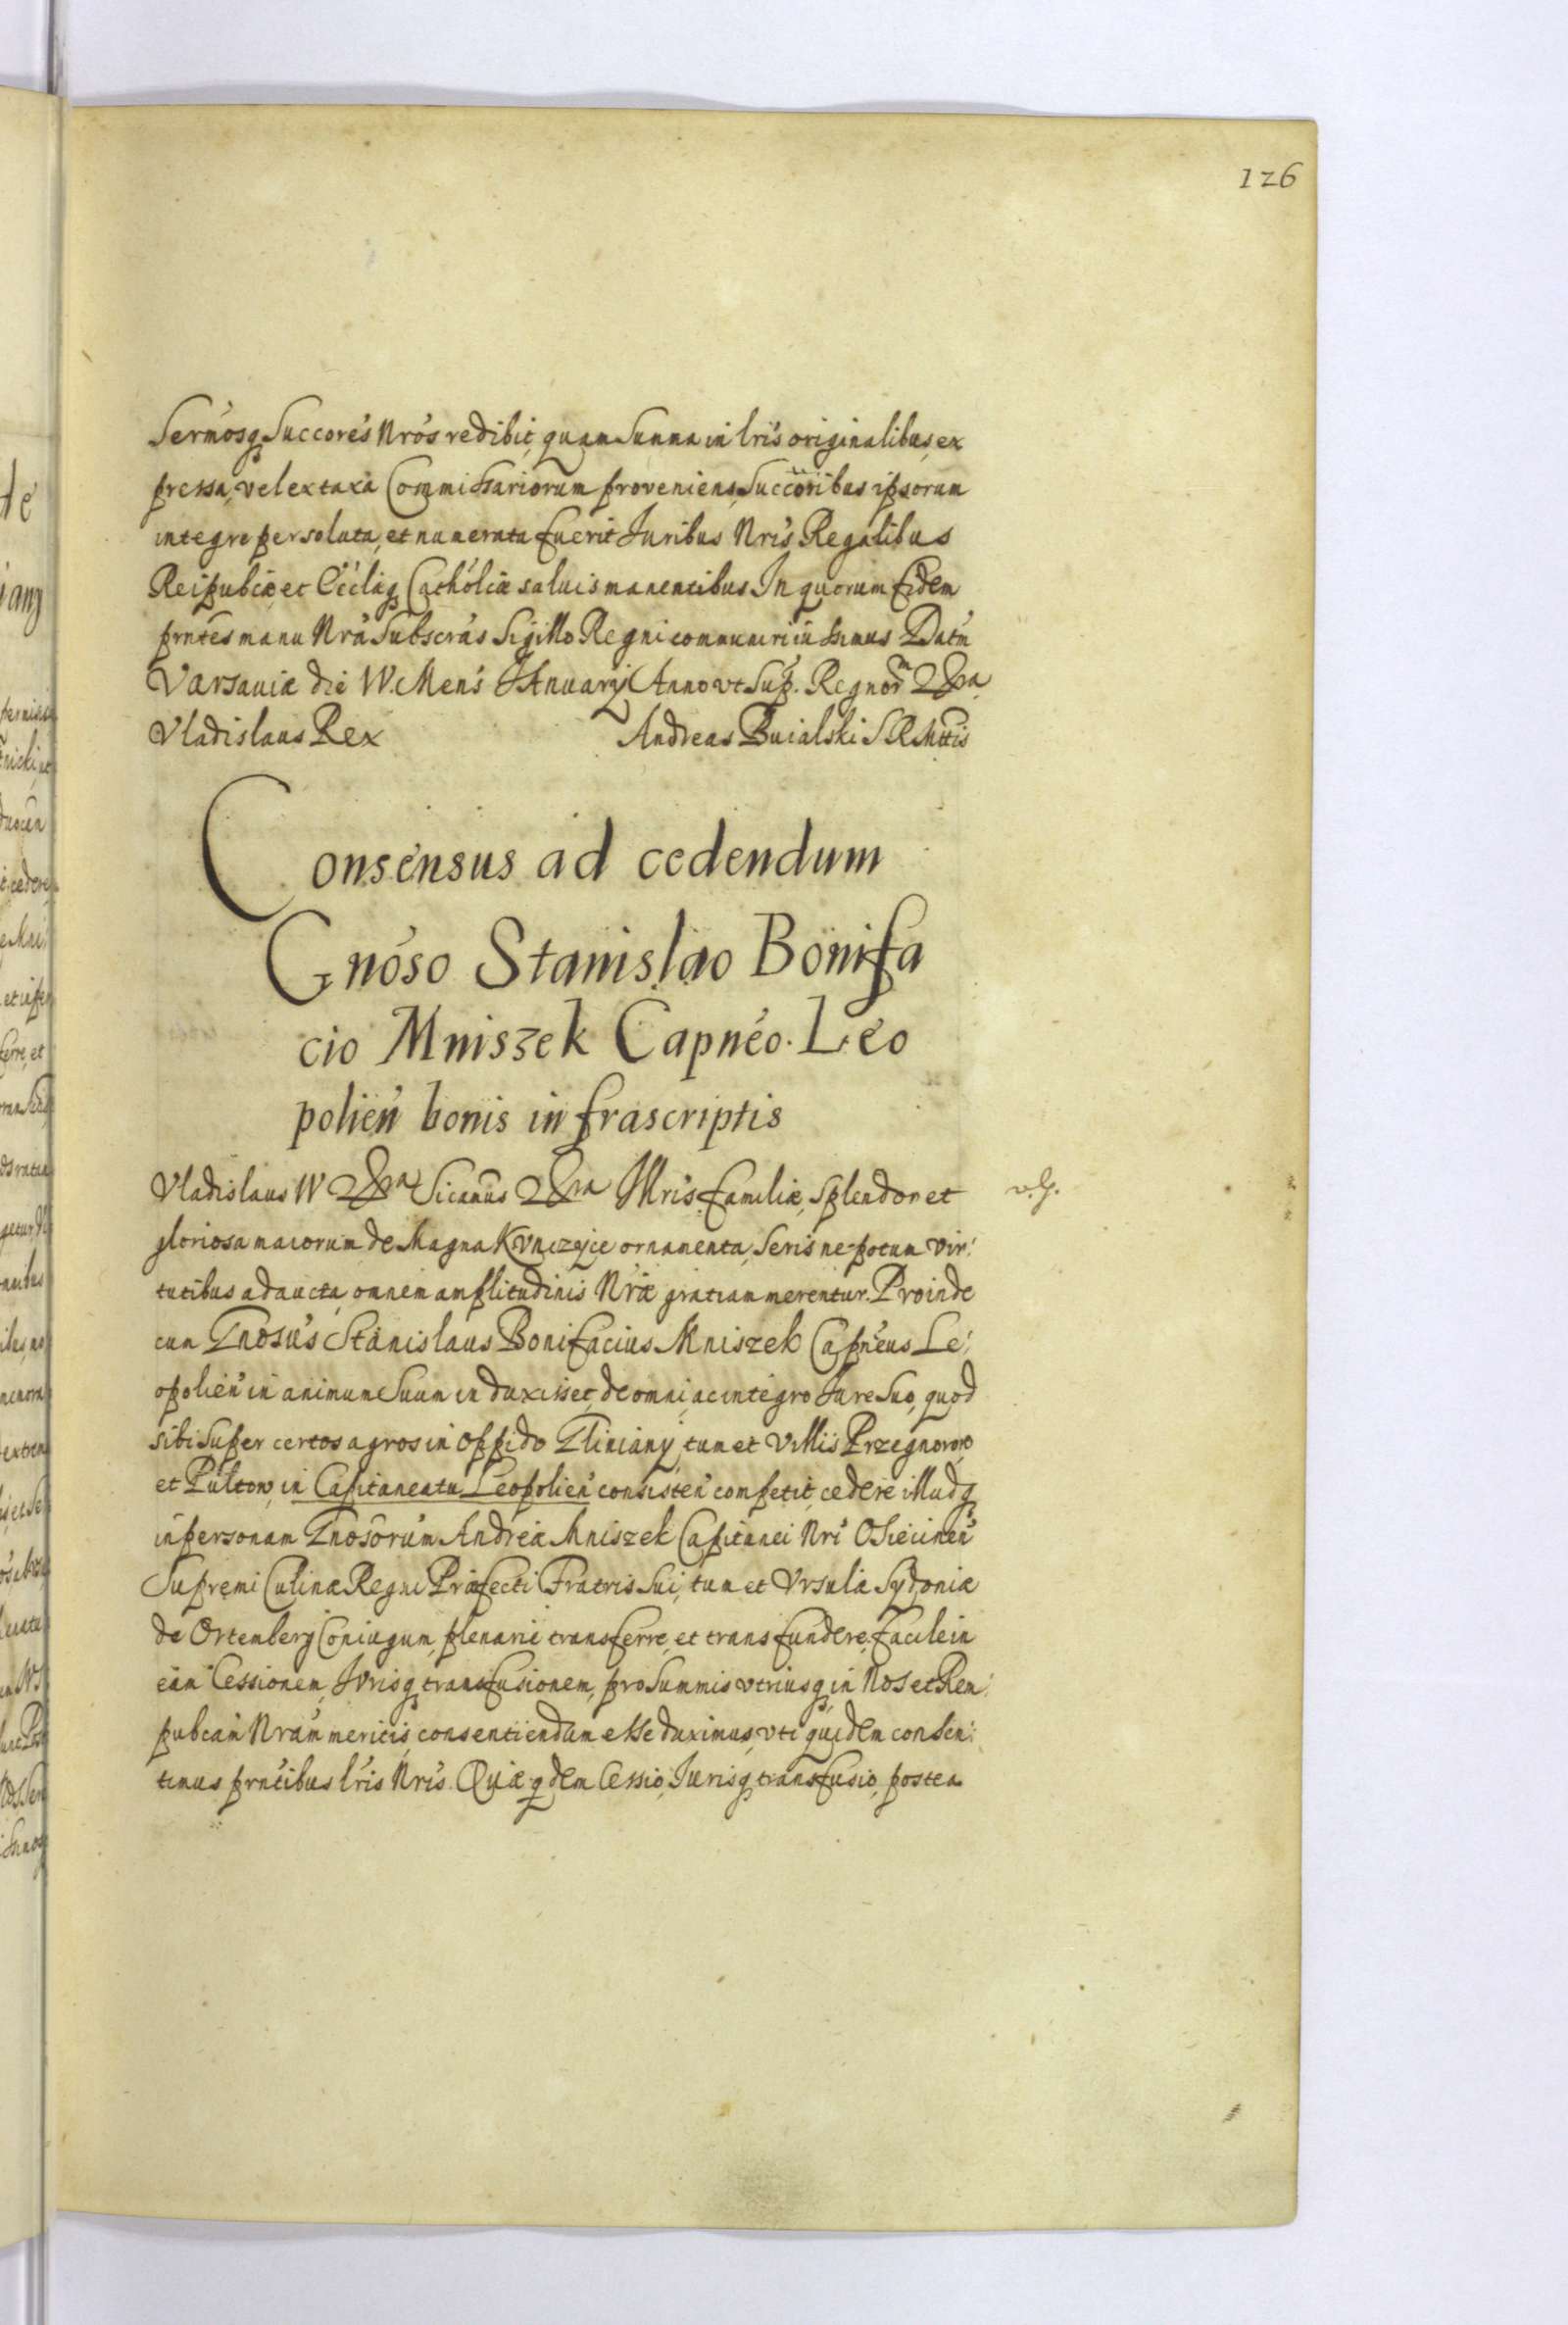 126
Sermosq Succores Nros redibit, quam Summa in lris originalibus, ex
pressa, vel ex taxa Commissariorum proveniens, Succoribus ipsorum
integre persoluta, et numerata fuerit Juribus Nris Regalibus
Reipubcæ et Ecclæq Cathólcæ saluis manentibus. In quorum fidem
prntes manu Nra Subscras Sigillo Regni communiri iussimus Datu
Varsaviæ die IV. Mens JAnuarij Anno vt Sup. Regnor
Vladislaus Rex Andreas Buialski SRMttis
Consensus ad cedendum
Gnóso Stanislao Bonifa
cio Mniszek Capnéo. Leo
polień bonis infrascriptis
Vladislaus IV Sicanus Illris familiæ, Splendor et
gloriosa maiorum de Magna Kvnczyce ornamenta, Seris nepotum vir
tutibus adaucta, omnem amplitudinis Nræ gratiam merentur. Proinde
cum Gnosus Stanislaus Bonifacius Mniszek Capneus Le
opolień in animum Suum induxisset, de omni, ac integro Jure Suo, quod
sibi Super certos agros in oppido Gliniany, tum et Villis Przegnoiow
et Pultow, in Capitaneatu Leopolień consisteń competit, cedere illudq
in personam Gnosorum Andreæ Mniszek Capitanei Nri Osiecineń
Supremi Culinæ Regni Præfecti Fratris Sui, tum et Vrsulæ Sydoniæ
de Ortemberg Coniugum, plenarie transferre, et transfundere, facile in
eam Cessionem, Jvrisq transfusionem, pro Summis vtriusq in Nos et Rem
pubcam Nram meritis, consentiendum esse duximus, vti quidem consen
timus prntibus lris Nris. Quæ qdem Cessio, Jurisq transfusio, postea